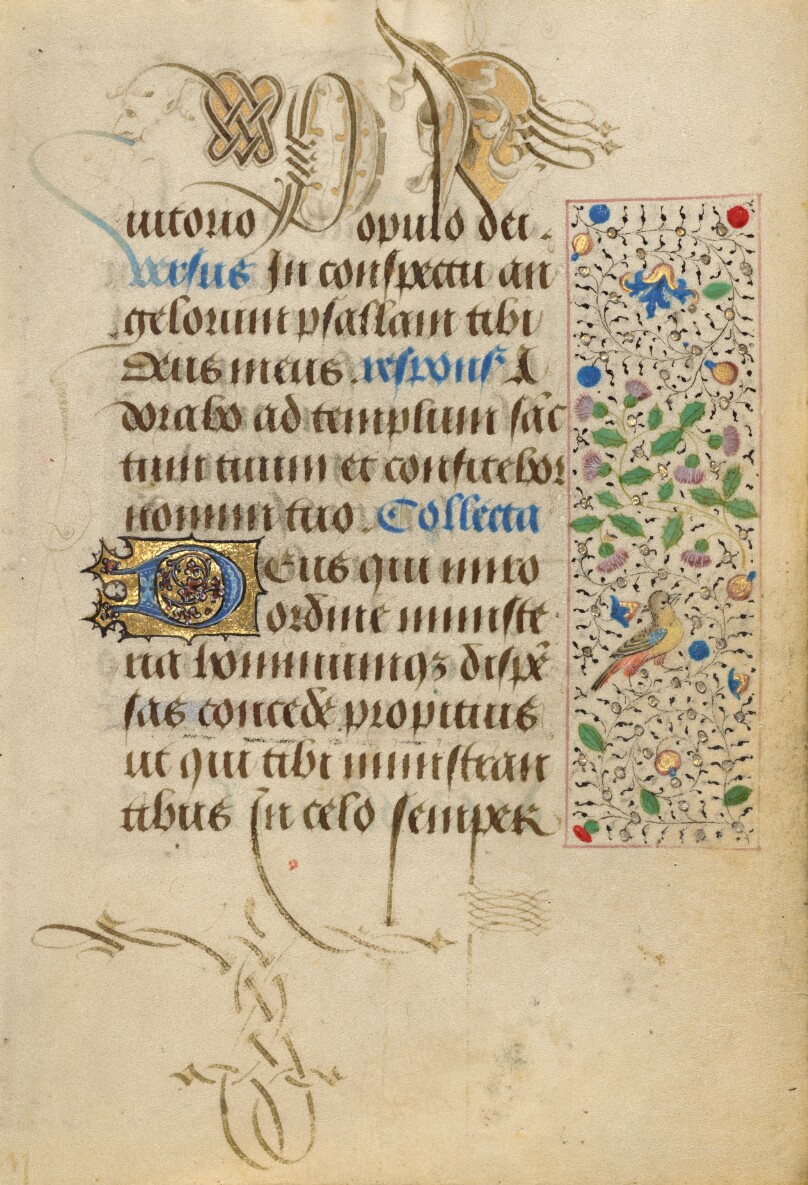 iutorio populo dei.
versus In conspectu an
gelorum psallam tibi
Deus meus. respons A
dorabo ad templum sāc
tum tuum et confitebor
nomini tuo. Collecta
Deus qui miro
ordine ministe
ria hominumqꝫ dispē
sas concede propitius
ut qui tibi ministran
tibus In celo semper